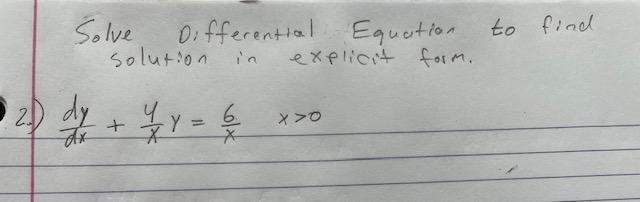 Solve Differential Equation to find
solution in explicit form.
2.) dy/dx + 4/x y = 6/x x>0